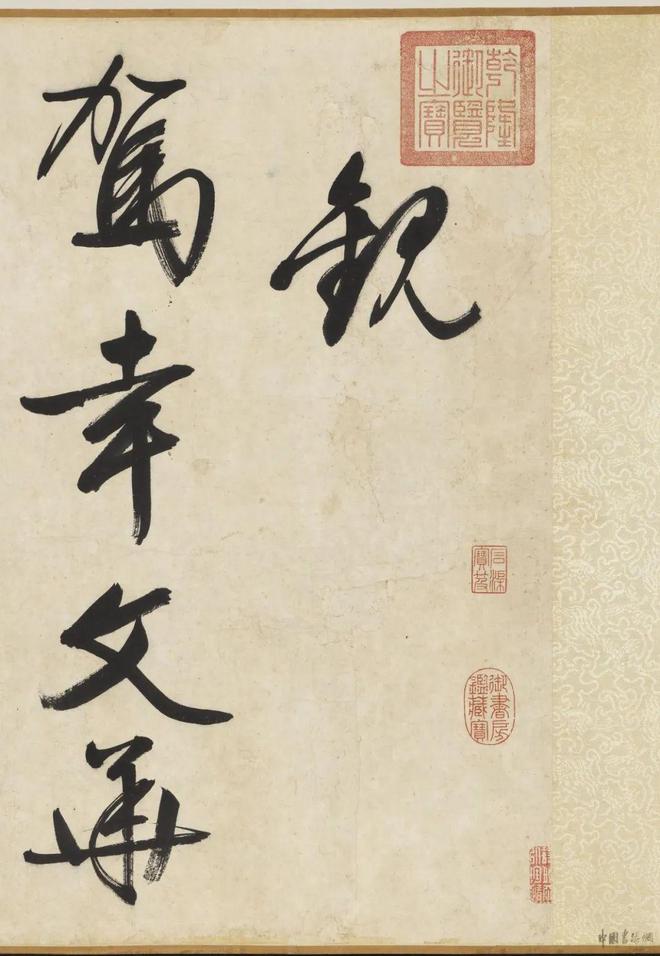 乾隆御覽之寶
觀
駕幸文華
石渠寶笈
御書房鑑藏寶
中國書法網